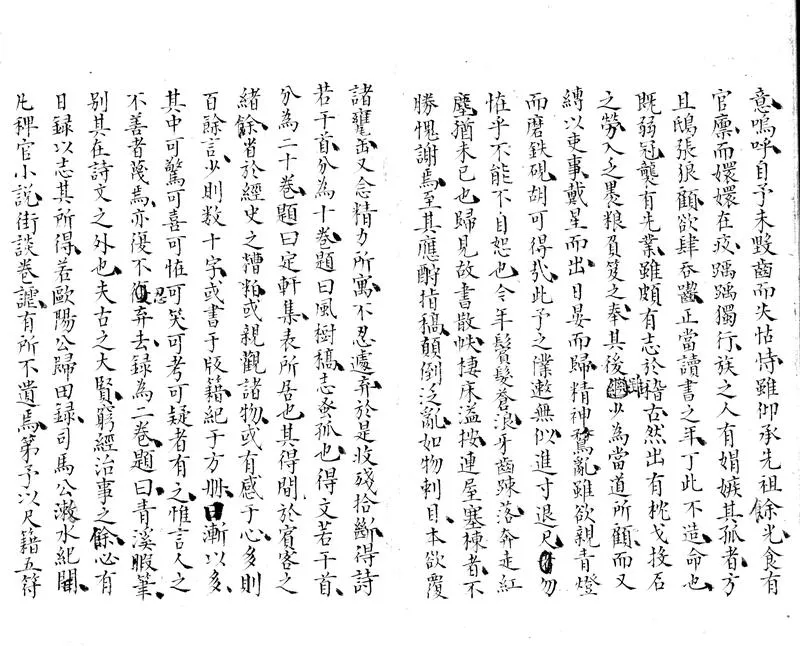 意嗚呼自予未毀齒而失怙恃雖仰承先祖餘光食有
官廩而嬛嬛在疚踽踽獨行族之人有媢嫉其孤者方
且鴟張狼顧欲肆吞齧正當讀書之年丁此不造命也
既弱冠襲有先業雖頗有志於稽古然出有枕戈投石
之勞入乏畏粮負笈之奉其後少為當道所顧而又
縛以吏事戴星而出日晏而歸精神瞀亂雖欲親青燈
而磨鐵硯胡可得哉此予之僕遬無似進寸退尺勿
惟乎不能不自恕也今年鬢髮蒼浪牙齒踈落奔走紅
塵猶未已也歸見故書散帙棲床溢按連屋塞棟者不
勝愧謝焉至其應酧揹稿顛倒泛亂如物刺目本欲覆
諸甕缶又念精力所寓不忍遽弃於是收殘拾斷得詩
若干首分為十卷題曰風樹稿志蚤孤也得文若干首
分為二十卷題曰定軒集表所居也其得間於賓客之
緒餘省於經史之糟粕或親觀諸物或有感于心多則
百餘言少則数十字或書于版籍紀于方冊日漸以多
其中可驚可喜可怪可笑可考可疑者有之惟言人之
不善者蔑焉亦復不忍弃去錄為二卷題曰青溪暇筆
別其在詩文之外也夫古之大賢窮經治事之餘心有
日録以志其所得若歐陽公歸田録司馬公漱水紀聞
凡稗官小説街談巷謔有所不遺焉第予以尺籍五符